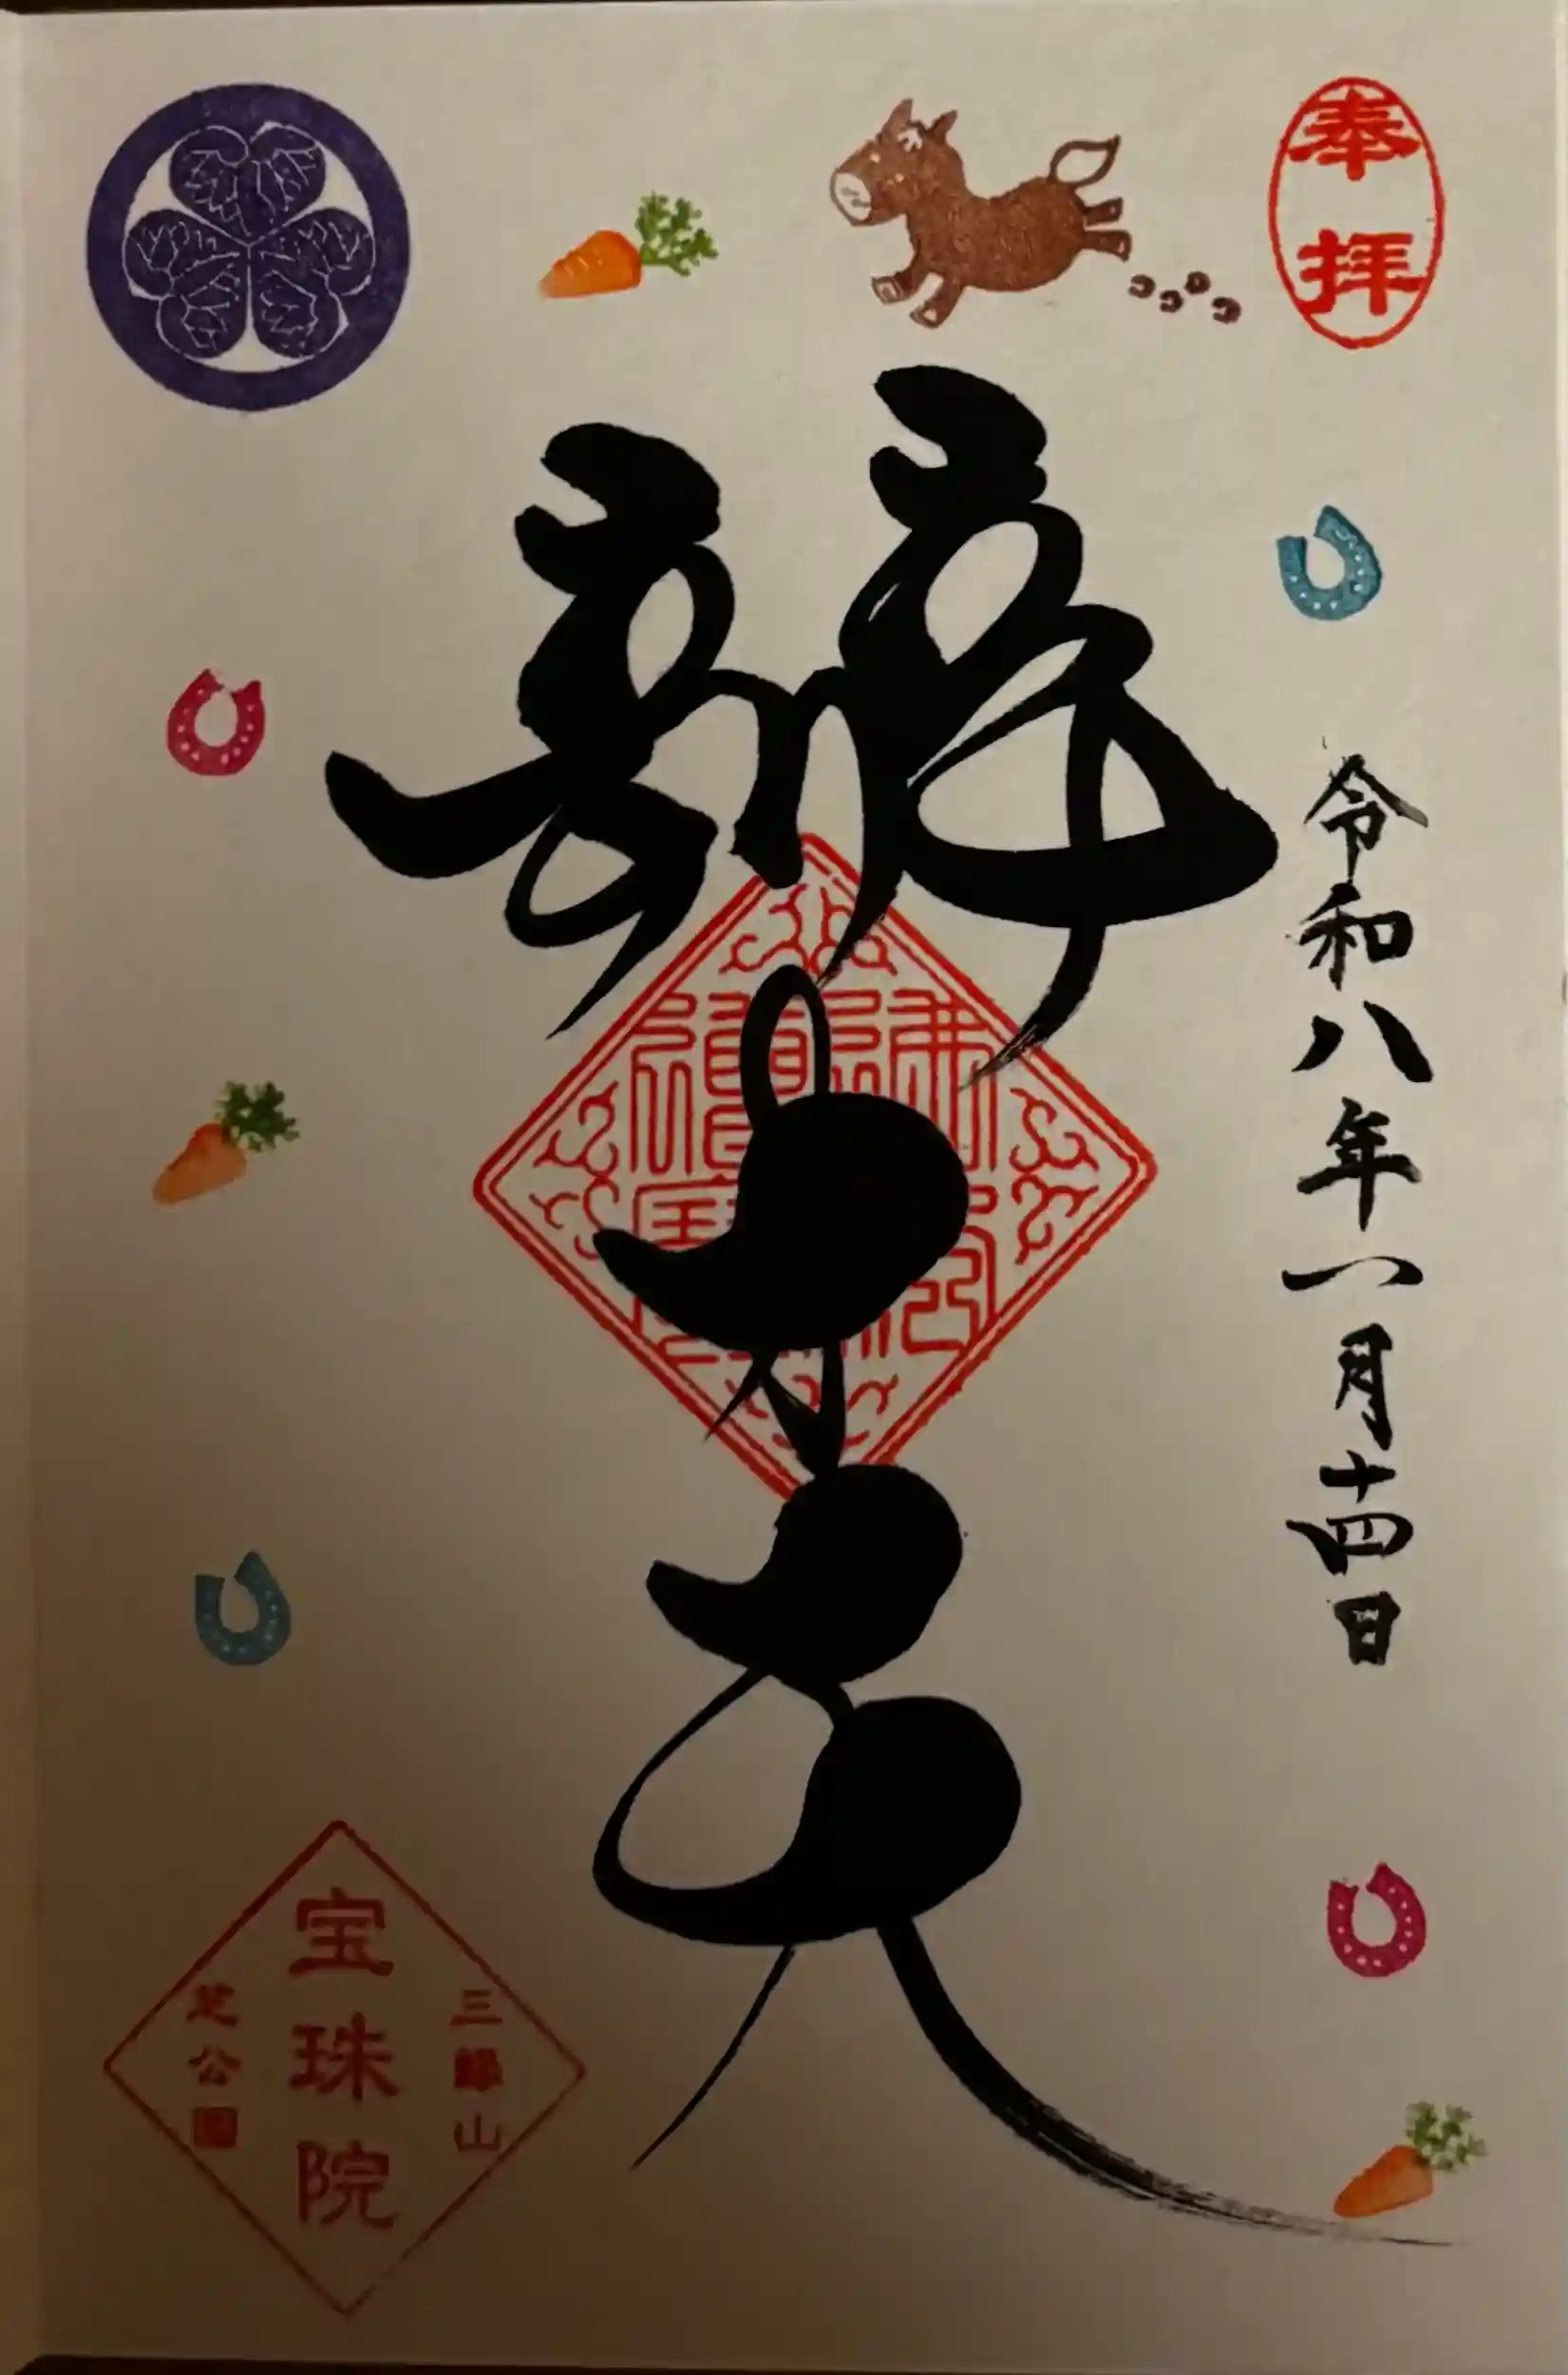 奉拝
令和八年一月十四日
辯才天
佛法僧寶
三縁山
宝珠院
芝公園